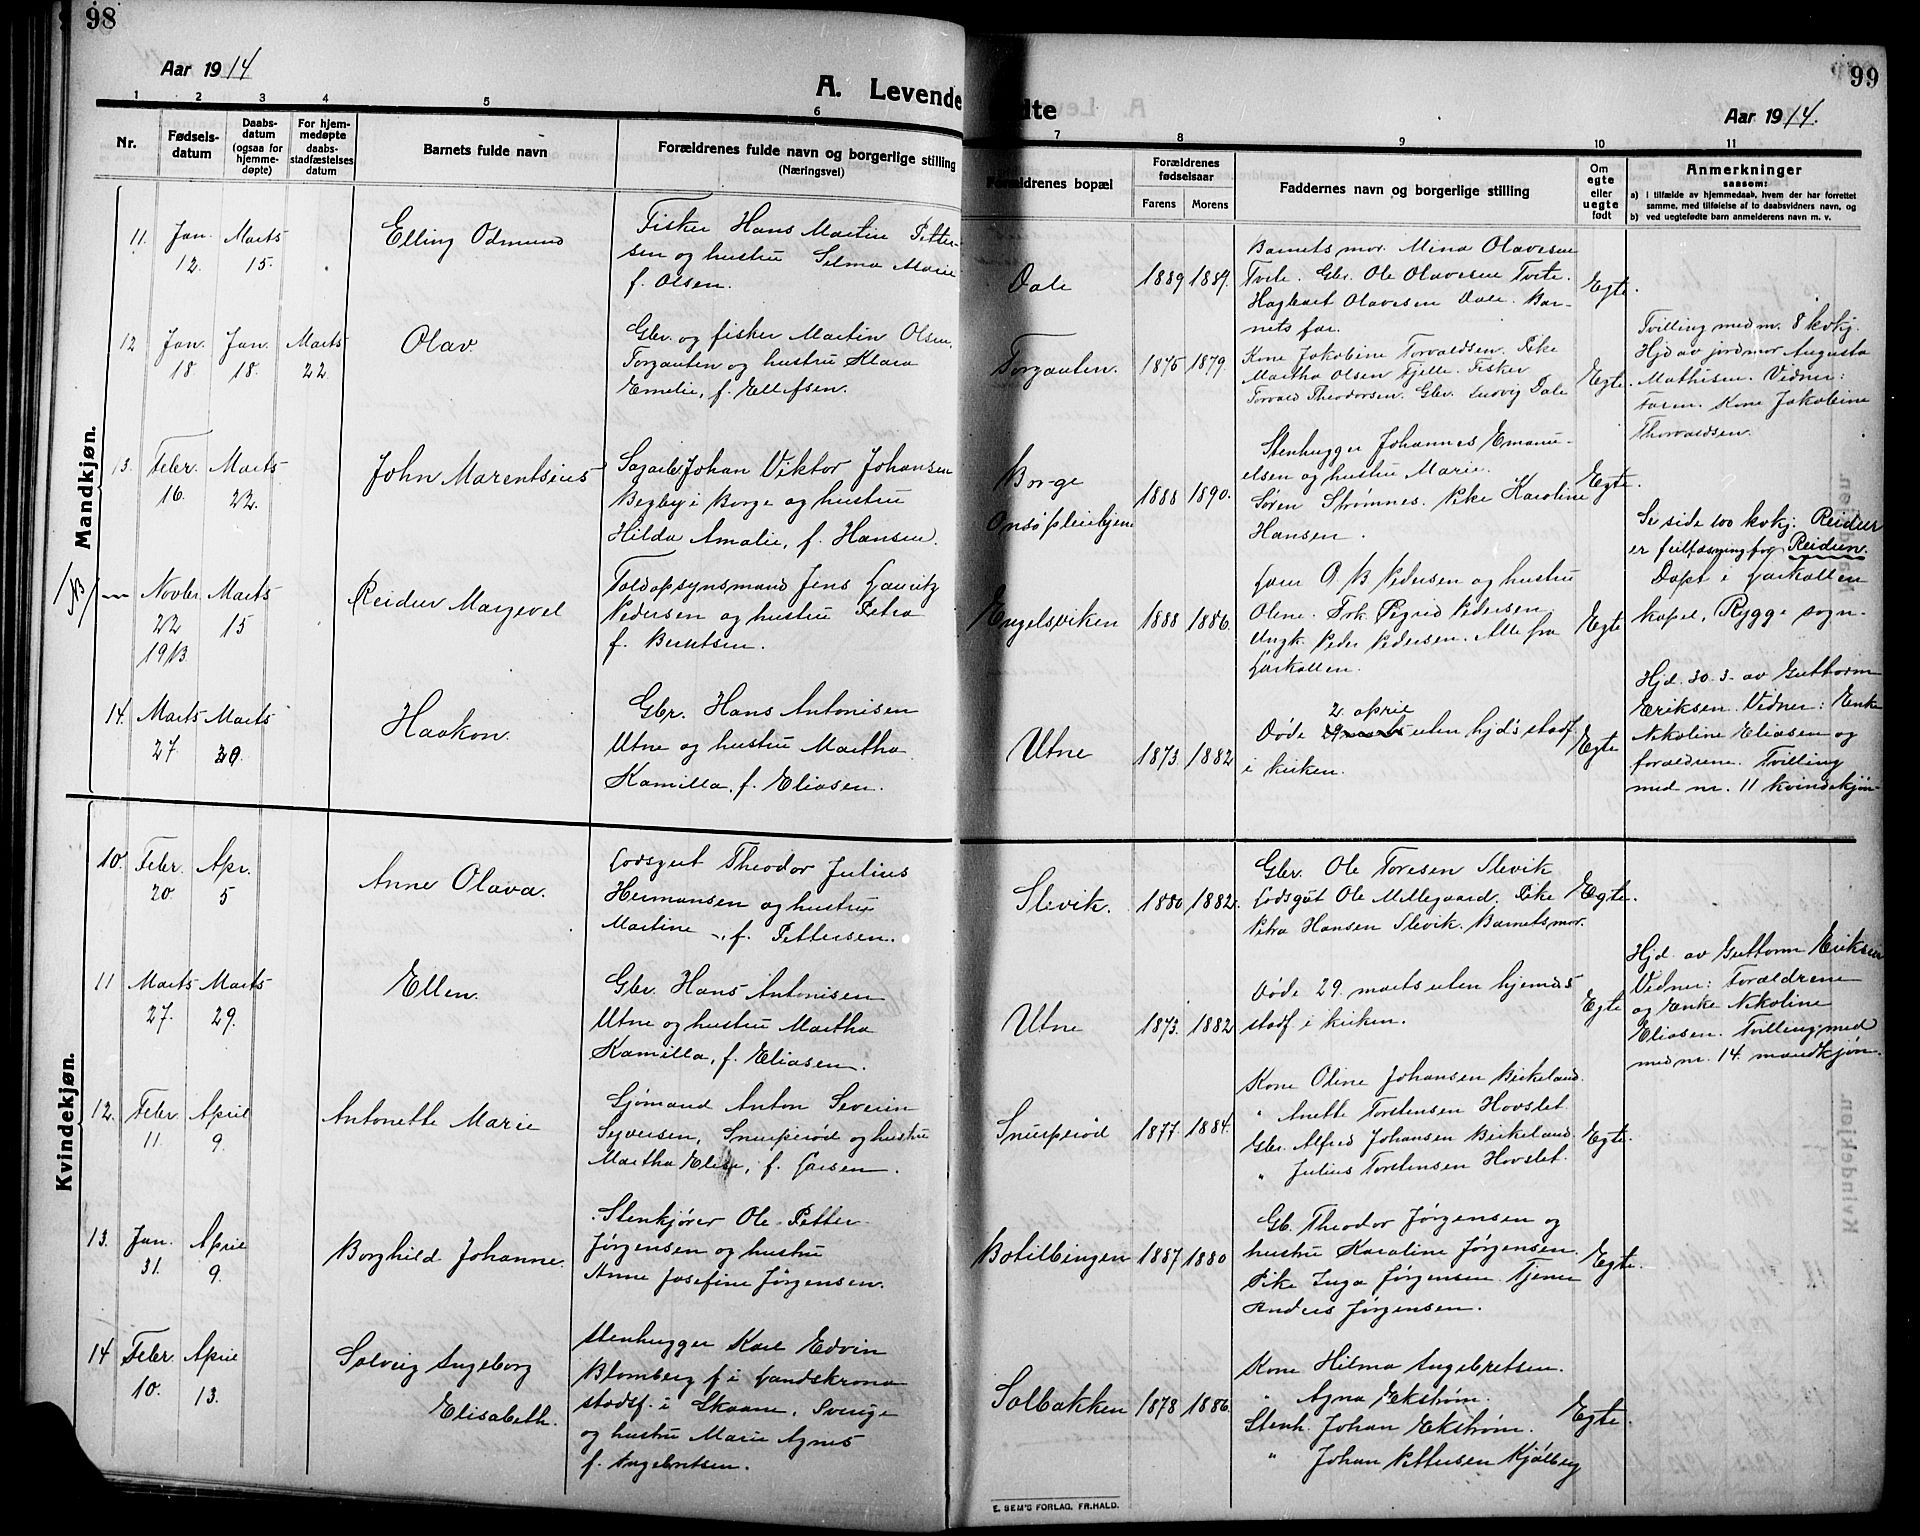 98
Aar 1914
A. Levende
1 2 3 4 5 6
Nr.
Fødsels-
datum
Daabs-
datum
(ogsaa for
hjemme-
døpte)
For hjem-
medøpte
daabs-
stadfæstelses
datum
Barnets fulde navn
Forældrenes fulde navn og borgerlige stilling
(Næringsvei)
Mandkjøn.
11. Jan. 12. Marts 15. Elling Odmund
Fisker Hans Martin Petter-
sen og hustru Selma Marie
f. Olsen.
12 Jan. 18. Jan. 18. Marts 22. Olav.
Gbr. og fisker Martin Olsen,
Torgauten og hustru Klara
Emelie, f. Ellefsen.
13. Febr. 16. Marts 22. John Marentsius
Sagarb. Johan Viktor Johansen
Begby i Borge og hustru
Hilda Amalie, f. Hansen.
Novbr. 22 1913. Marts 15 Reidur Margevel
Toldopsynsmand Jens Lauritz
Pedersen og hustru Petra
f. Berntsen.
14. Marts 27. Marts 30. Haakon.
Gbr. Hans Antonisen
Utne og hustru Martha
Kamilla, f. Eliasen.
Kvindekjøn.
10. Febr. 20. Apr. 5 Anne Olava.
Lodsgut Theodor Julius
Hermansen og hustru
Martine –, f. Pettersen.
11 Marts 27. Marts 29. Ellen.
Gbr. Hans Antonisen
Utne og hustru Martha
Kamilla, f. Eliasen.
12. Febr. 11. April 9. Antonette Marie
Sjømand Anton Severin
Syversen, Snurperød og hustru
Martha Elise, f. Larsen.
13. Jan. 31. April 9. Borghild Johanne.
Stenkjører Ole Petter
Jørgensen og hustru
Anne Josefine Jørgensen.
14 Febr. 10. April 13. Solveig Ingeborg
Elisabeth.
Stenhugger Karl Edvin
Blomberg f. i Landskrona
stadsf. i Skaane, Sverige
og hustru Marie Agnes
f. Ingebretsen.
99
dte
Aar 1914.
7 8 9 10 11
Forældrenes bopæl
Forældrenes
fødselsaar
Farens Morens
Faddernes navn og borgerlige stilling
Om
egte
eller
uegte
født
Anmerkninger
saasom:
a) i tilfælde av hjemmedaab, hvem der har forrettet
samme, med tilføielse af to daabsvidners navn, og
b) ved uegtefødte barn anmelderens navn m. v.
Dale 1889 1889.
Barnets mor. Mina Olavesen
Tvete. Gbr. Ole Olavesen Tvete.
Hagbart Olavesen Dale. Bar-
nets far.
Egte.
Torgauten. 1875 1879.
Kone Jakobine Torvaldsen. Pike
Martha Olsen Fjelle. Fisker
Torvald Theodorsen. Gbr. Ludvig Dale
Egte.
Tvilling med nr. 8 kvkj.
Hjd. av jordmor Augusta
Mathisen. Vidner:
Faren. Kone Jakobine
Thorvaldsen.
Borge
Onsø pleiehjem 1888 1890.
Stenhugger Johannes Emanu-
elsen og hustru Marie.
Søren Strømnes. Pike Karoline
Hansen.
Egte.
Se side 100 kvkj. Reidur
er feillæsning for Reidun.
Engelsviken 1888 1886.
Lars O. B. Pedersen og hustru
Oline. Frk. Sigrid Pedersen.
Ungk. Peder Pedersen. Alle fra
Larkollen.
Egte
Døpt i Larkollen
kapel, Rygge sogn.
Utne 1873. 1882
2. april
Døde uten hjd's stadf.
i kirken.
Egte
Hjd. 30. 3. av Guttorm
Eriksen. Vidner: Enke
Nikoline Eliasen og
forældrene. Tvilling
med nr. 11 kvindekjøn
Slevik. 1880 1882.
Gbr. Ole Toresen Slevik
Lodsgut Ole Mellegaard. Pike
Petra Hansen Slevik. Barnets mor.
Egte.
Utne 1873. 1882
Døde 29. marts uten hjemdøs
stadf. i kirken.
Egte
Hjd. av Guttorm Eriksen
Vidner: Forældrene
og Enke Nikoline
Eliasen. Tvilling med
med nr. 14 mandkjøn.
Snurperød 1877. 1884.
Kone Oline Johansen Birkeland.
" Anette Torstensen Hovslet.
Gbr. Alfred Johansen Birkeland.
" Julius Torstensen Hovslet.
Egte.
Botilbingen 1887 1880
Gb. Theodor Jørgensen og
hustru Karoline Jørgensen.
Pike Inga Jørgensen. Tjener
Anders Jørgensen.
Egte.
Solbakken 1878 1886.
Kone Hilma Ingebretsen.
" Agna Ekstrøm.
Stenh. Johan Ekstrøm.
" Johan Pettersen Kjølberg
Egte.
E. SEM'S FORLAG, FR.HALD.